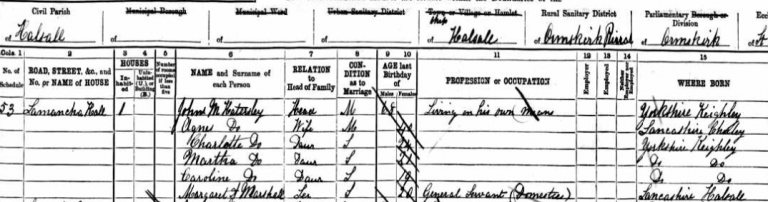 Civil Parish Municipal Borough Municipal Ward Urban Sanitary District Town or Village or Hamlet Rural Sanitary District Parliamentary Borough or Division
of Halsall of of of of Halsall of Ormskirk Rural of Ormskirk
Cols. 1 2 3 4 5 6 7 8 9 10 11 12 13 14 15
No. of Schedule ROAD, STREET, &c., and No. or NAME of HOUSE HOUSES Inhabited Uninhabited (U.) or Building (B.) Number of rooms occupied if less than five NAME and Surname of each Person RELATION to Head of Family CONDITION as to Marriage AGE last Birthday of Males Females PROFESSION or OCCUPATION Employer Employed WHERE BORN
53 Lamancha Hall 1 John M Hatersley Head M Living on his own means Yorkshire Keighley
Agnes Do Wife M Lancashire Chorley
Charlotte Do Daur S Yorkshire Keighley
Martha Do Daur S Do Do
Caroline Do Daur S Do Do
Margaret Marshall Ser S General Servant (Domestic) Lancashire Halsall